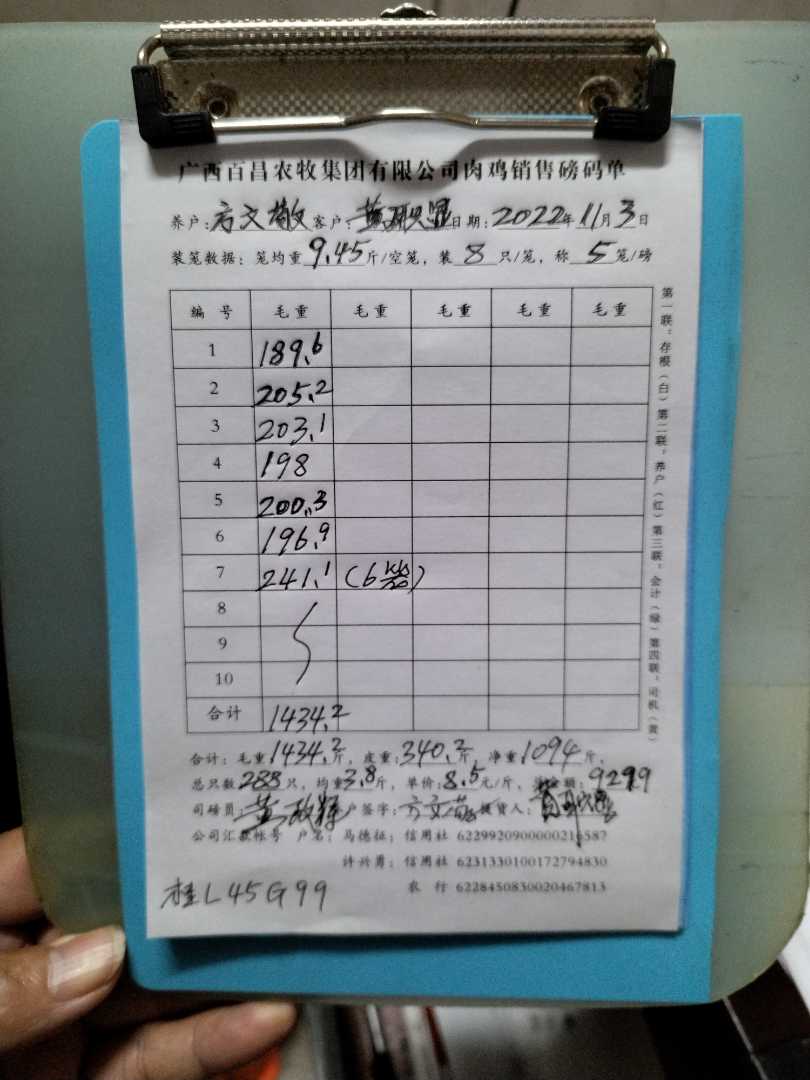 广西百昌农牧集团有限公司肉鸡销售磅码单
养户:方文敬 客户:黄联显 日期:2022年11月3日
装笼数据:笼均重9.45斤/空笼,装8只/笼,称5笼/磅
编号 毛重 毛重 毛重 毛重 毛重
1 189.6
2 205.2
3 203.1
4 198
5 200.3
6 196.9
7 241.1 (6笼)
8
9
10
合计 1434.2
合计:毛重1434.2斤,皮重:340.2斤,净重1094斤,
总只数288只,均重3.8斤,单价:8.5元/斤,总金额:9299
司磅员:黄 户签字:方文敬 提货人:黄联显
公司汇款帐号 户名:马德征;信用社 6229920900000216587
许兴勇;信用社 6231330100172794830
农行 6228450830020467813
桂L45G99
第一联:存根(白)第二联:养户(红)第三联:会计(绿)第四联:司机(黄)